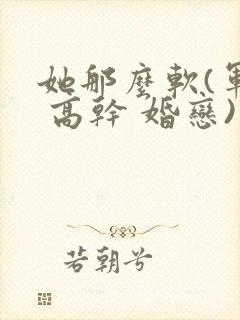 她那麼軟(軍
高幹 婚戀)
若朝兮